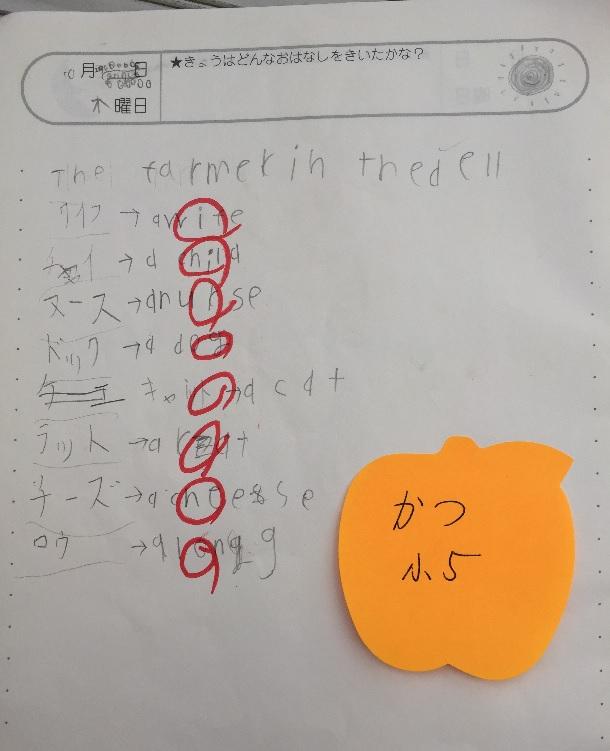 10月 日
木曜日
★きょうはどんなおはなしをきいたかな？
The farmer in the dell
ワイフ→a wife
チャイ→a child
ヌース→a nurse
ドック→a dog
キャット→a cat
ラット→a rat
チーズ→a cheese
ロウ→a
かつ
小5